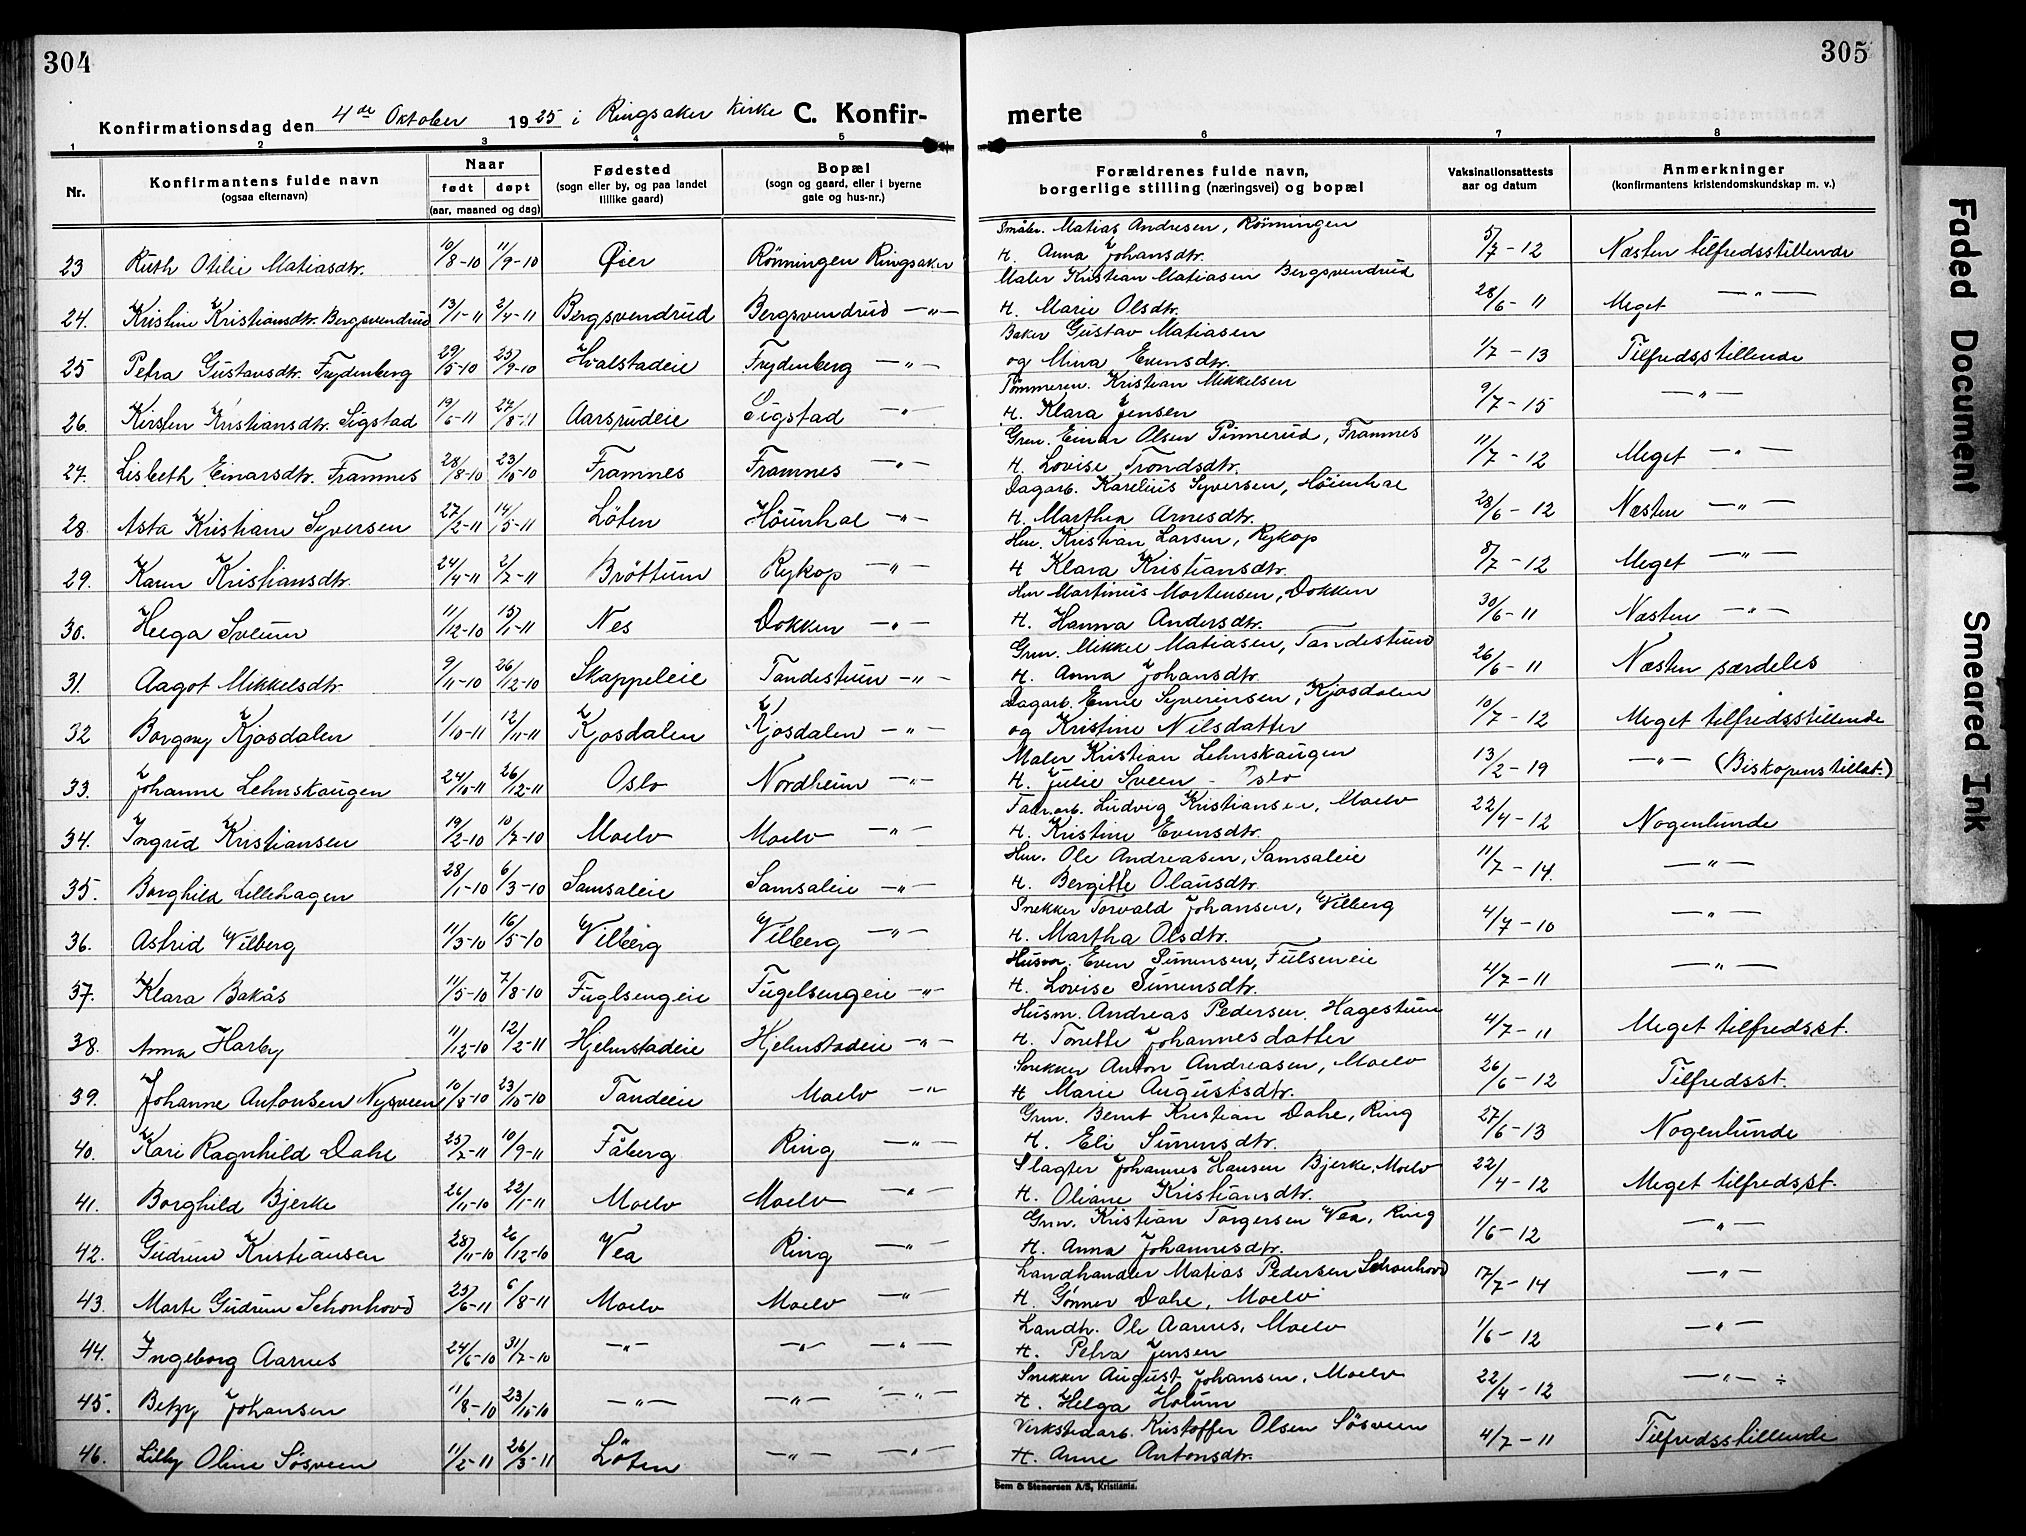 304
305
Konfirmationsdag den 4de Oktober 1925 i Ringsaker Kirke C. Konfir-
merte
1 2 3 4 5 6 7 8
Nr. Konfirmantens fulde navn (ogsaa efternavn) Naar født døpt (aar, maaned og dag) Fødested (sogn eller by, og paa landet tillike gaard) Bopæl (sogn og gaard, eller i byerne gate og hus-nr.) Forældrenes fulde navn, borgerlige stilling (næringsvei) og bopæl Vaksinationsattests aar og datum Anmerkninger (konfirmantens kristendomskundskap m. v.)
Småbr. Matias Andresen, Rönningen
23 Ruth Otilie Matiasdtr. 10/8-10 11/9-10 Øier Rönningen Ringsaker H. Anna Johansdtr. 5/7-12 Næsten tilfredsstillende
Maler Kristian Matiasen Bergsvendrud
24. Kristine Kristiansdtr. Bergsvendrud 13/1-11 2/4-11 Bergsvendrud Bergsvendrud —"— H. Marie Olsdtr. 28/6-11 Meget —"—
Baker Gustav Matiasen
25 Petra Gustavsdtr. Frydenberg 29/5-10 25/9-10 Hvalstadeie Frydenberg —"— og Mina Evensdtr. 1/7-13 Tilfredsstillende
Tömmerm. Kristian Mikkelsen
26. Kirsten Kristiansdtr. Sigstad 19/6-11 27/8-11 Aarsrudeie Sigstad —"— H. Klara Jensen 9/7-15 —"—
Grm. Einar Olsen Pinnerud, Framnes
27. Lisbeth Einarsdtr. Framnes 28/8-10 23/10-10 Framnes Framnes —"— H. Lovise Trondsdtr. 11/7-12 Meget —"—
Dagarb. Karelius Syversen, Höienhal
28. Asta Kristiane Syversen 27/2-11 14/5-11 Löten Höienhal —"— H. Marthea Arnesdtr. 28/6-12 Næsten —"—
Hm. Kristian Larsen, Rykop
29. Karen Kristiansdtr. 24/4-11 2/7-11 Bröttum Rykop —"— H Klara Kristiansdtr. 8/7-12 Meget —"—
Hm Martinus Mortensen, Dokken
30. Helga Sveum 11/12-10 15/1-11 Nes Dokken —"— H. Hanna Andersdtr. 30/6-11 Næsten —"—
Grm. Mikkel Matiasen, Tandestuen
31. Aagot Mikkelsdtr. 9/11-10 26/12-10 Skappeleie Tandestuen —"— H. Anna Johansdtr. 26/6-11 Næsten særdeles
Dagarb. Syverinsen, Kjosdalen
32 Borgny Kjosdalen 1/10-11 12/11-11 Kjosdalen Kjosdalen —"— og Kristine Nilsdatter 10/7-12 Meget tilfredsstillende
Maler Kristian Lehnskaugen
33. Johanne Lehnskaugen 24/10-11 26/12-11 Oslo Nordheim —"— H. Julie Sveen - Oslo 13/2-19 —"— (Biskopens tillat.)
Fabr.arb. Ludvig Kristiansen, Moelv
34. Ingrid Kristiansen 19/2-10 10/7-10 Moelv Moelv —"— H. Kristine Evensdtr. 22/4-12 Nogenlunde
Hm. Ole Andreasen, Samsaleie
35. Borghild Lillehagen 28/1-10 6/3-10 Samsaleie Samsaleie —"— H. Bergitte Olausdtr. 11/7-14. —"—
Snekker Torvald Johansen, Vilberg
36. Astrid Vilberg 11/3-10 16/5-10 Vilberg Vilberg —"— H. Martha Olsdtr. 4/7-10 —"—
Husm. Even Simensen, Fulseneie
37. Klara Bakås 11/5-10 7/8-10 Fuglsengeie Fugelsengeie —"— H. Lovise Simensdtr. 4/7-11 —"—
Husm. Andreas Pedersen, Hagestuen
38. Anna Harby 11/12-10 12/2-11 Hjelmstadeie Hjelmstadeie —"— H. Tonette Johannesdatter 4/7-11 Meget tilfredsst.
Snekker Anton Andreasen, Moelv
39. Johanne Antonsen Nysveen 10/8-10 23/10-10 Tandeie Moelv —"— H Marie Augustsdtr. 26/6-12 Tilfredsst.
Grm. Bernt Kristian Dahl, Ring
40. Kari Ragnhild Dahl 25/7-11 10/9-11 Fåberg Ring —"— H. Eli Simensdtr. 27/6-13 Nogenlunde
Slagter Johannes Hansen Bjerke, Moelv
41. Borghild Bjerke 26/11-10 22/1-11 Moelv Moelv —"— H. Oliane Kristiansdtr. 22/4-12 Meget tilfredsst.
Grm. Kristian Torgersen Vea, Ring
42. Gudrun Kristiansen 28/11-10 26/12-10 Vea Ring —"— H. Anna Johannesdtr. 1/6-12 —"—
Landhandler Matias Pedersen Schonhovd
43. Marte Gudrun Schonhovd 25/6-11 6/8-11 Moelv Moelv —"— H. Gunner Dahl, Moelv 17/7-14 —"—
Landh. Ole Aarnes, Moelv
44. Ingeborg Aarnes 24/6-10 31/7-10 —"— —"— —"— H. Petra Jensen 1/6-12 —"—
Snekker August Johansen, Moelv
45. Betzy Johansen 11/8-10 23/10-10 —"— —"— —"— H. Helga Holum 22/4-12 —"— ÷
Verkstedarb. Kristoffer Olsen Sösveen
46. Lilly Oline Sösveen 11/2-11 26/3-11 Löten —"— —"— H. Anne Antonsdtr. 4/7-11 Tilfredsstillende
Sem & Stenersen A/S, Kristiania.
Faded Document
Smeared Ink